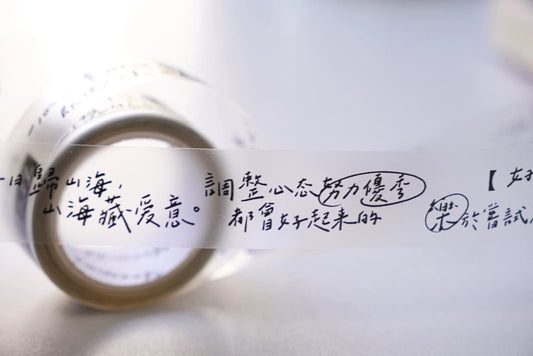 日歸山海,
山海藏爱意。
調整心态努力優秀
都會好起来的
【
樂於嘗試